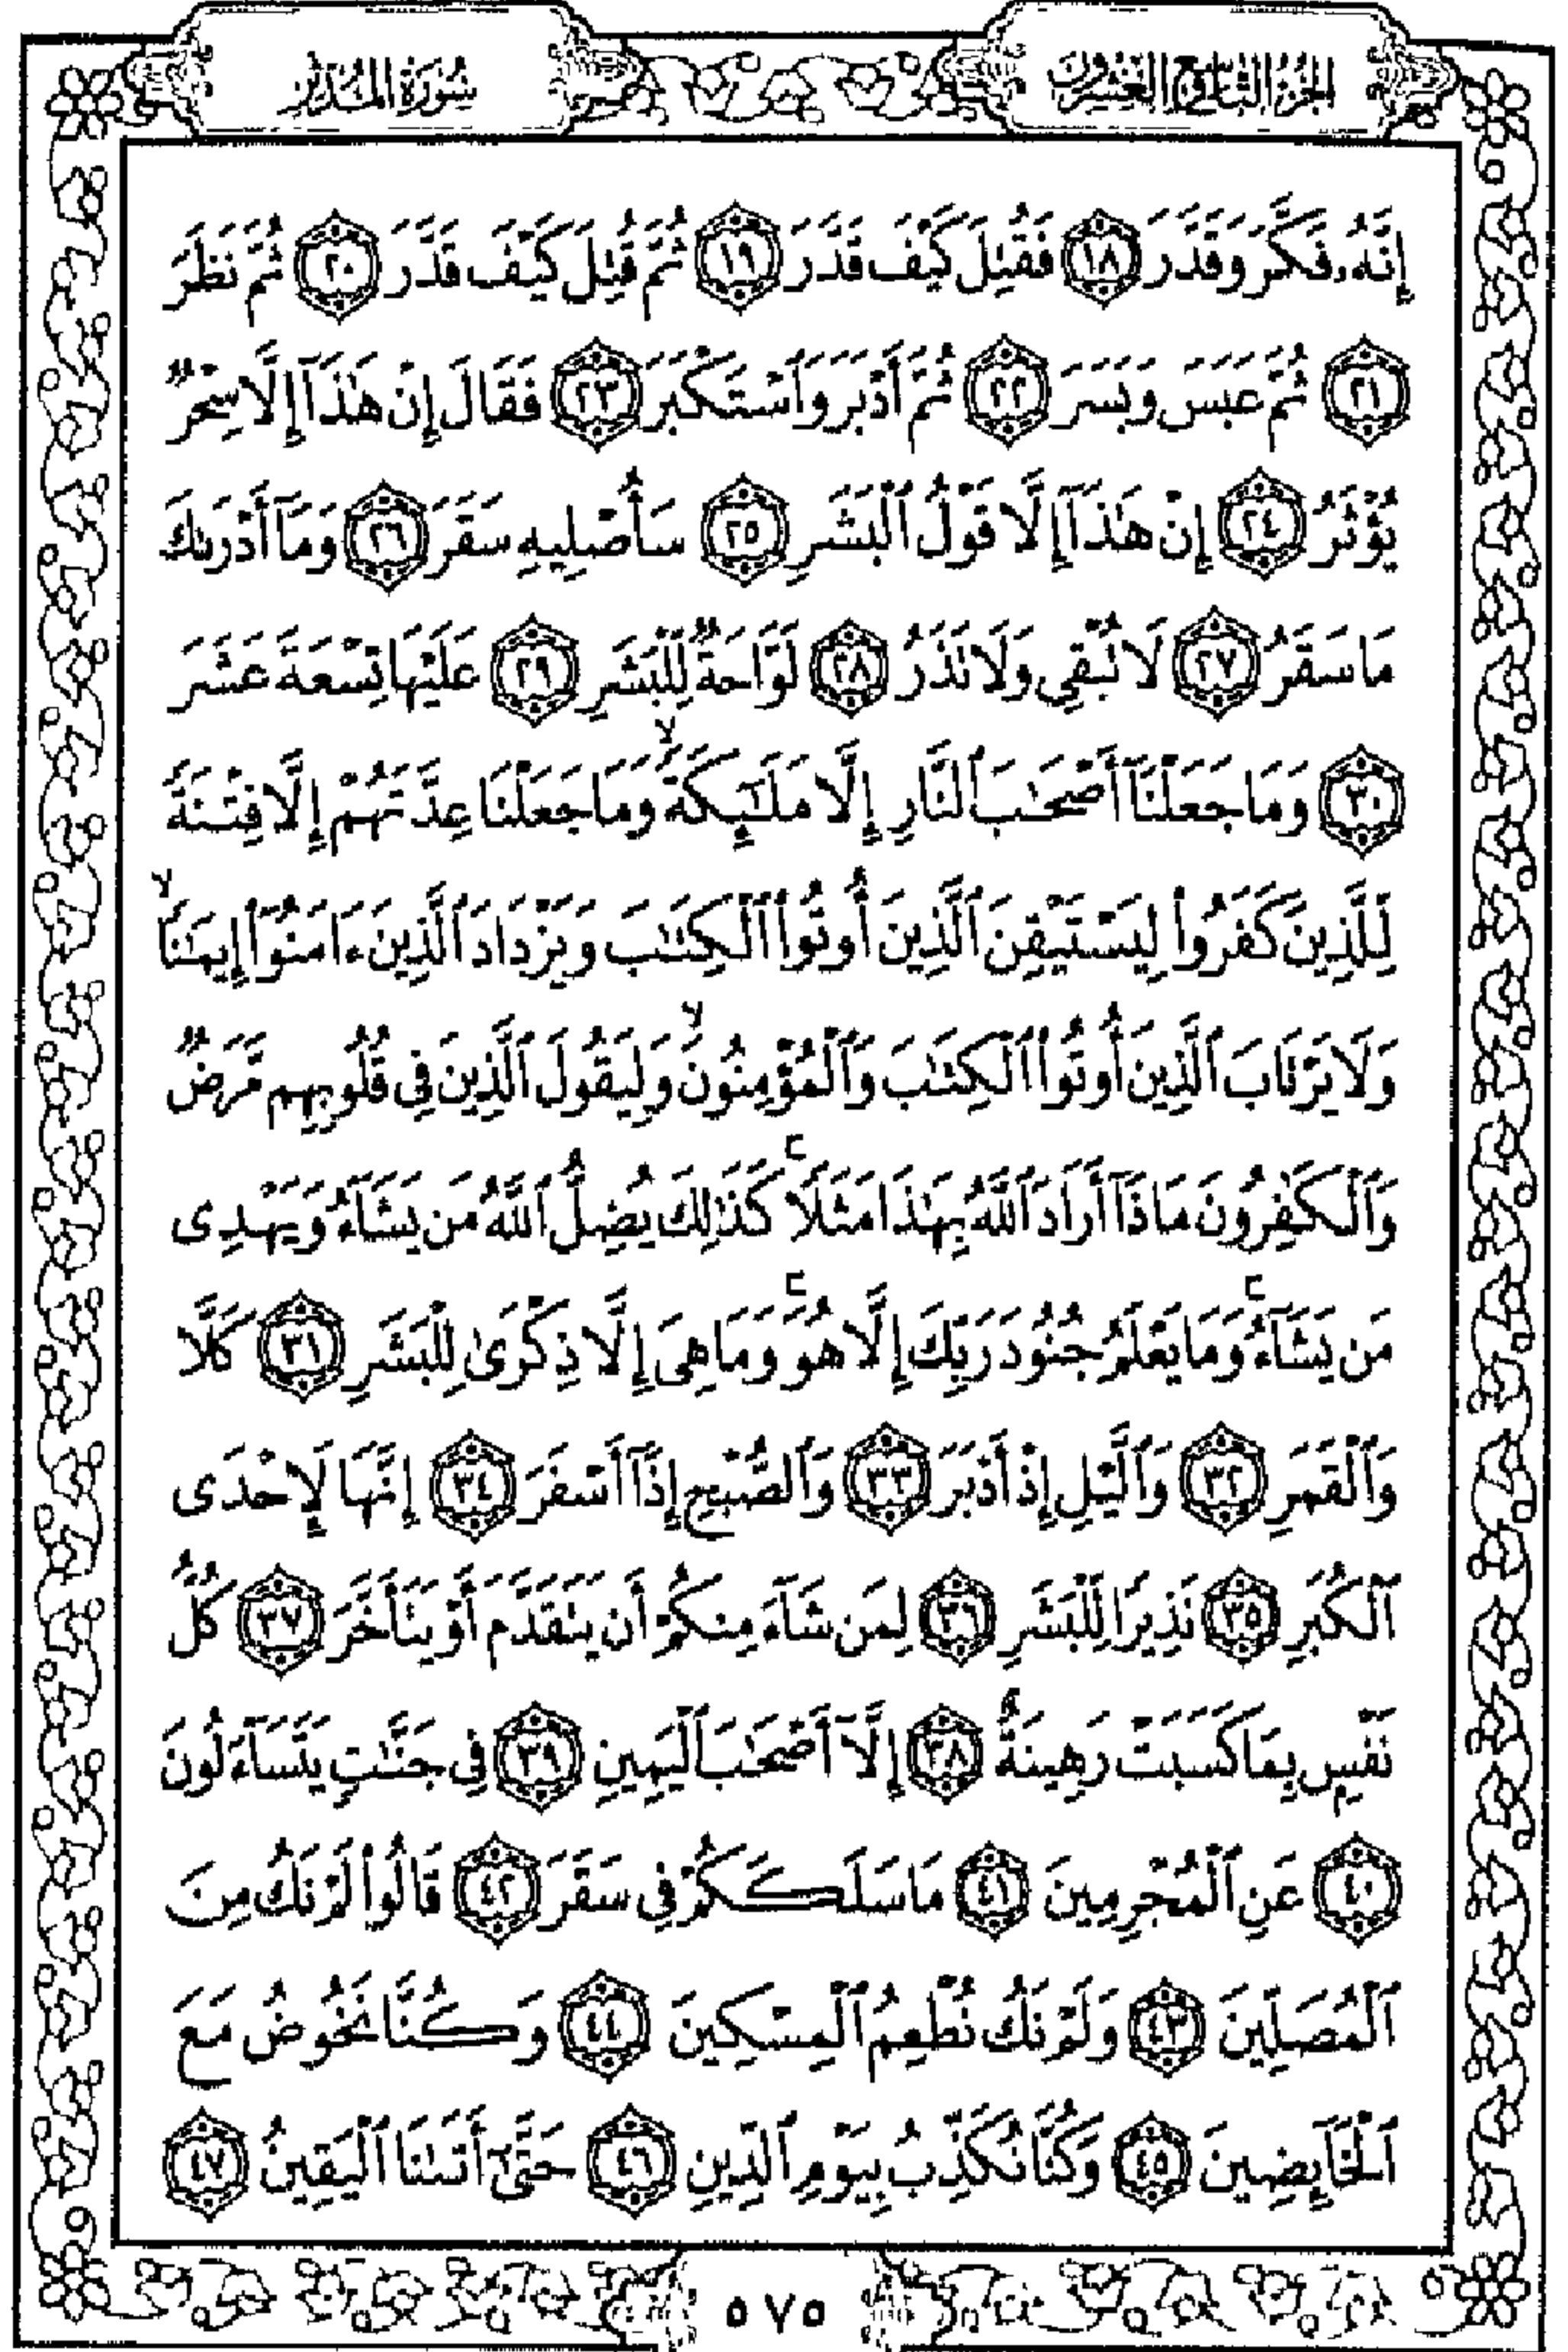 الجزء التاسع والعشرون
سورة المدثر
إِنَّهُۥ فَكَّرَ وَقَدَّرَ ١٨ فَقُتِلَ كَيْفَ قَدَّرَ ١٩ ثُمَّ قُتِلَ كَيْفَ قَدَّرَ ٢٠ ثُمَّ نَظَرَ
٢١ ثُمَّ عَبَسَ وَبَسَرَ ٢٢ ثُمَّ أَدْبَرَ وَٱسْتَكْبَرَ ٢٣ فَقَالَ إِنْ هَٰذَآ إِلَّا سِحْرٌ
يُؤْثَرُ ٢٤ إِنْ هَٰذَآ إِلَّا قَوْلُ ٱلْبَشَرِ ٢٥ سَأُصْلِيهِ سَقَرَ ٢٦ وَمَآ أَدْرَىٰكَ
مَا سَقَرُ ٢٧ لَا تُبْقِى وَلَا تَذَرُ ٢٨ لَوَّاحَةٌ لِّلْبَشَرِ ٢٩ عَلَيْهَا تِسْعَةَ عَشَرَ
٣٠ وَمَا جَعَلْنَآ أَصْحَٰبَ ٱلنَّارِ إِلَّا مَلَٰٓئِكَةً ۙ وَمَا جَعَلْنَا عِدَّتَهُمْ إِلَّا فِتْنَةً
لِّلَّذِينَ كَفَرُوا۟ لِيَسْتَيْقِنَ ٱلَّذِينَ أُوتُوا۟ ٱلْكِتَٰبَ وَيَزْدَادَ ٱلَّذِينَ ءَامَنُوٓا۟ إِيمَٰنًا ۙ
وَلَا يَرْتَابَ ٱلَّذِينَ أُوتُوا۟ ٱلْكِتَٰبَ وَٱلْمُؤْمِنُونَ ۙ وَلِيَقُولَ ٱلَّذِينَ فِى قُلُوبِهِم مَّرَضٌ
وَٱلْكَٰفِرُونَ مَاذَآ أَرَادَ ٱللَّهُ بِهَٰذَا مَثَلًا ۚ كَذَٰلِكَ يُضِلُّ ٱللَّهُ مَن يَشَآءُ وَيَهْدِى
مَن يَشَآءُ ۚ وَمَا يَعْلَمُ جُنُودَ رَبِّكَ إِلَّا هُوَ ۚ وَمَا هِىَ إِلَّا ذِكْرَىٰ لِلْبَشَرِ ٣١ كَلَّا
وَٱلْقَمَرِ ٣٢ وَٱلَّيْلِ إِذْ أَدْبَرَ ٣٣ وَٱلصُّبْحِ إِذَآ أَسْفَرَ ٣٤ إِنَّهَا لَإِحْدَى
ٱلْكُبَرِ ٣٥ نَذِيرًا لِّلْبَشَرِ ٣٦ لِمَن شَآءَ مِنكُمْ أَن يَتَقَدَّمَ أَوْ يَتَأَخَّرَ ٣٧ كُلُّ
نَفْسٍۭ بِمَا كَسَبَتْ رَهِينَةٌ ٣٨ إِلَّآ أَصْحَٰبَ ٱلْيَمِينِ ٣٩ فِى جَنَّٰتٍ يَتَسَآءَلُونَ
٤٠ عَنِ ٱلْمُجْرِمِينَ ٤١ مَا سَلَكَكُمْ فِى سَقَرَ ٤٢ قَالُوا۟ لَمْ نَكُ مِنَ
ٱلْمُصَلِّينَ ٤٣ وَلَمْ نَكُ نُطْعِمُ ٱلْمِسْكِينَ ٤٤ وَكُنَّا نَخُوضُ مَعَ
ٱلْخَآئِضِينَ ٤٥ وَكُنَّا نُكَذِّبُ بِيَوْمِ ٱلدِّينِ ٤٦ حَتَّىٰٓ أَتَىٰنَا ٱلْيَقِينُ ٤٧
٥٧٥